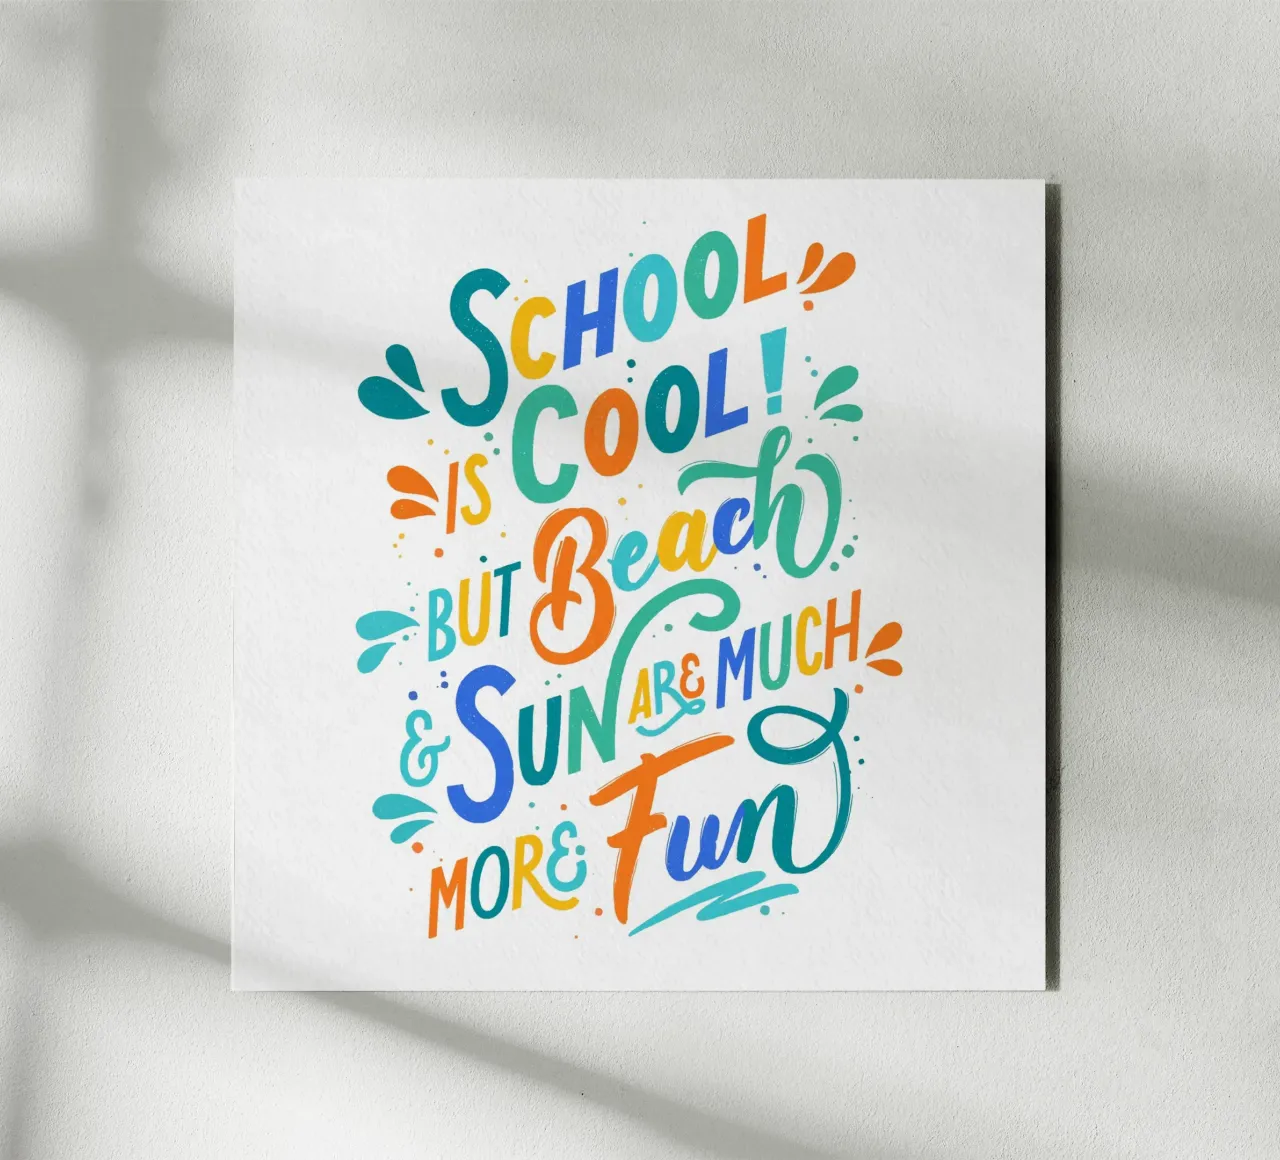 SCHOOL
IS COOL!
BUT Beach
& SUN ARE MUCH
MORE Fun